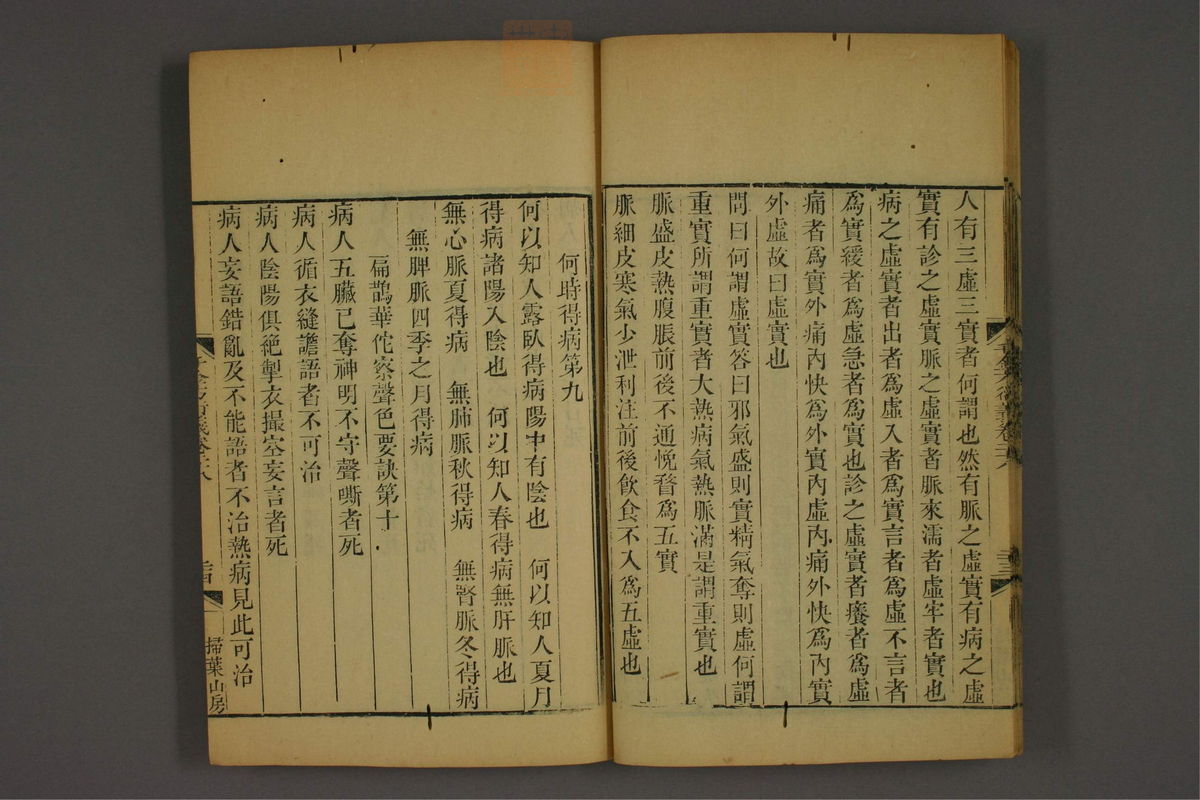 人有三虛三實者何謂也然有脈之虛實有病之虛
實有診之虛實脈之虛實者脈來濡者虛牢者實也
病之虛實者出者為虛入者為實言者為虛不言者
為實緩者為虛急者為實也診之虛實者癢者為虛
痛者為實外痛內快為外實內虛內痛外快為內實
外虛故曰虛實也
問曰何謂虛實答曰邪氣盛則實精氣奪則虛何謂
重實所謂重實者大熱病氣熱脈滿是謂重實也
脈盛皮熱腹脹前後不通悗瞀為五實
脈細皮寒氣少泄利注前後飲食不入為五虛也
何時得病第九
何以知人露臥得病陽中有陰也　何以知人夏月
得病諸陽入陰也　何以知人春得病無肝脈也
無心脈夏得病　無肺脈秋得病　無腎脈冬得病
無脾脈四季之月得病
扁鵲華佗察聲色要訣第十
病人五臟已奪神明不守聲嘶者死
病人循衣縫譫語者不可治
病人陰陽俱絕掣衣撮空妄言者死
病人妄語錯亂及不能語者不治熱病見此可治
掃葉山房